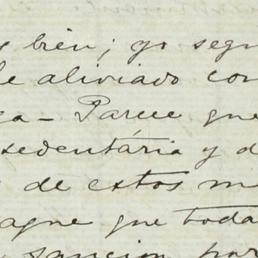 s bien; yo segu
le aliviado con
ga - Parece que
sedentária y d
de estos mi
que toda
sancion por